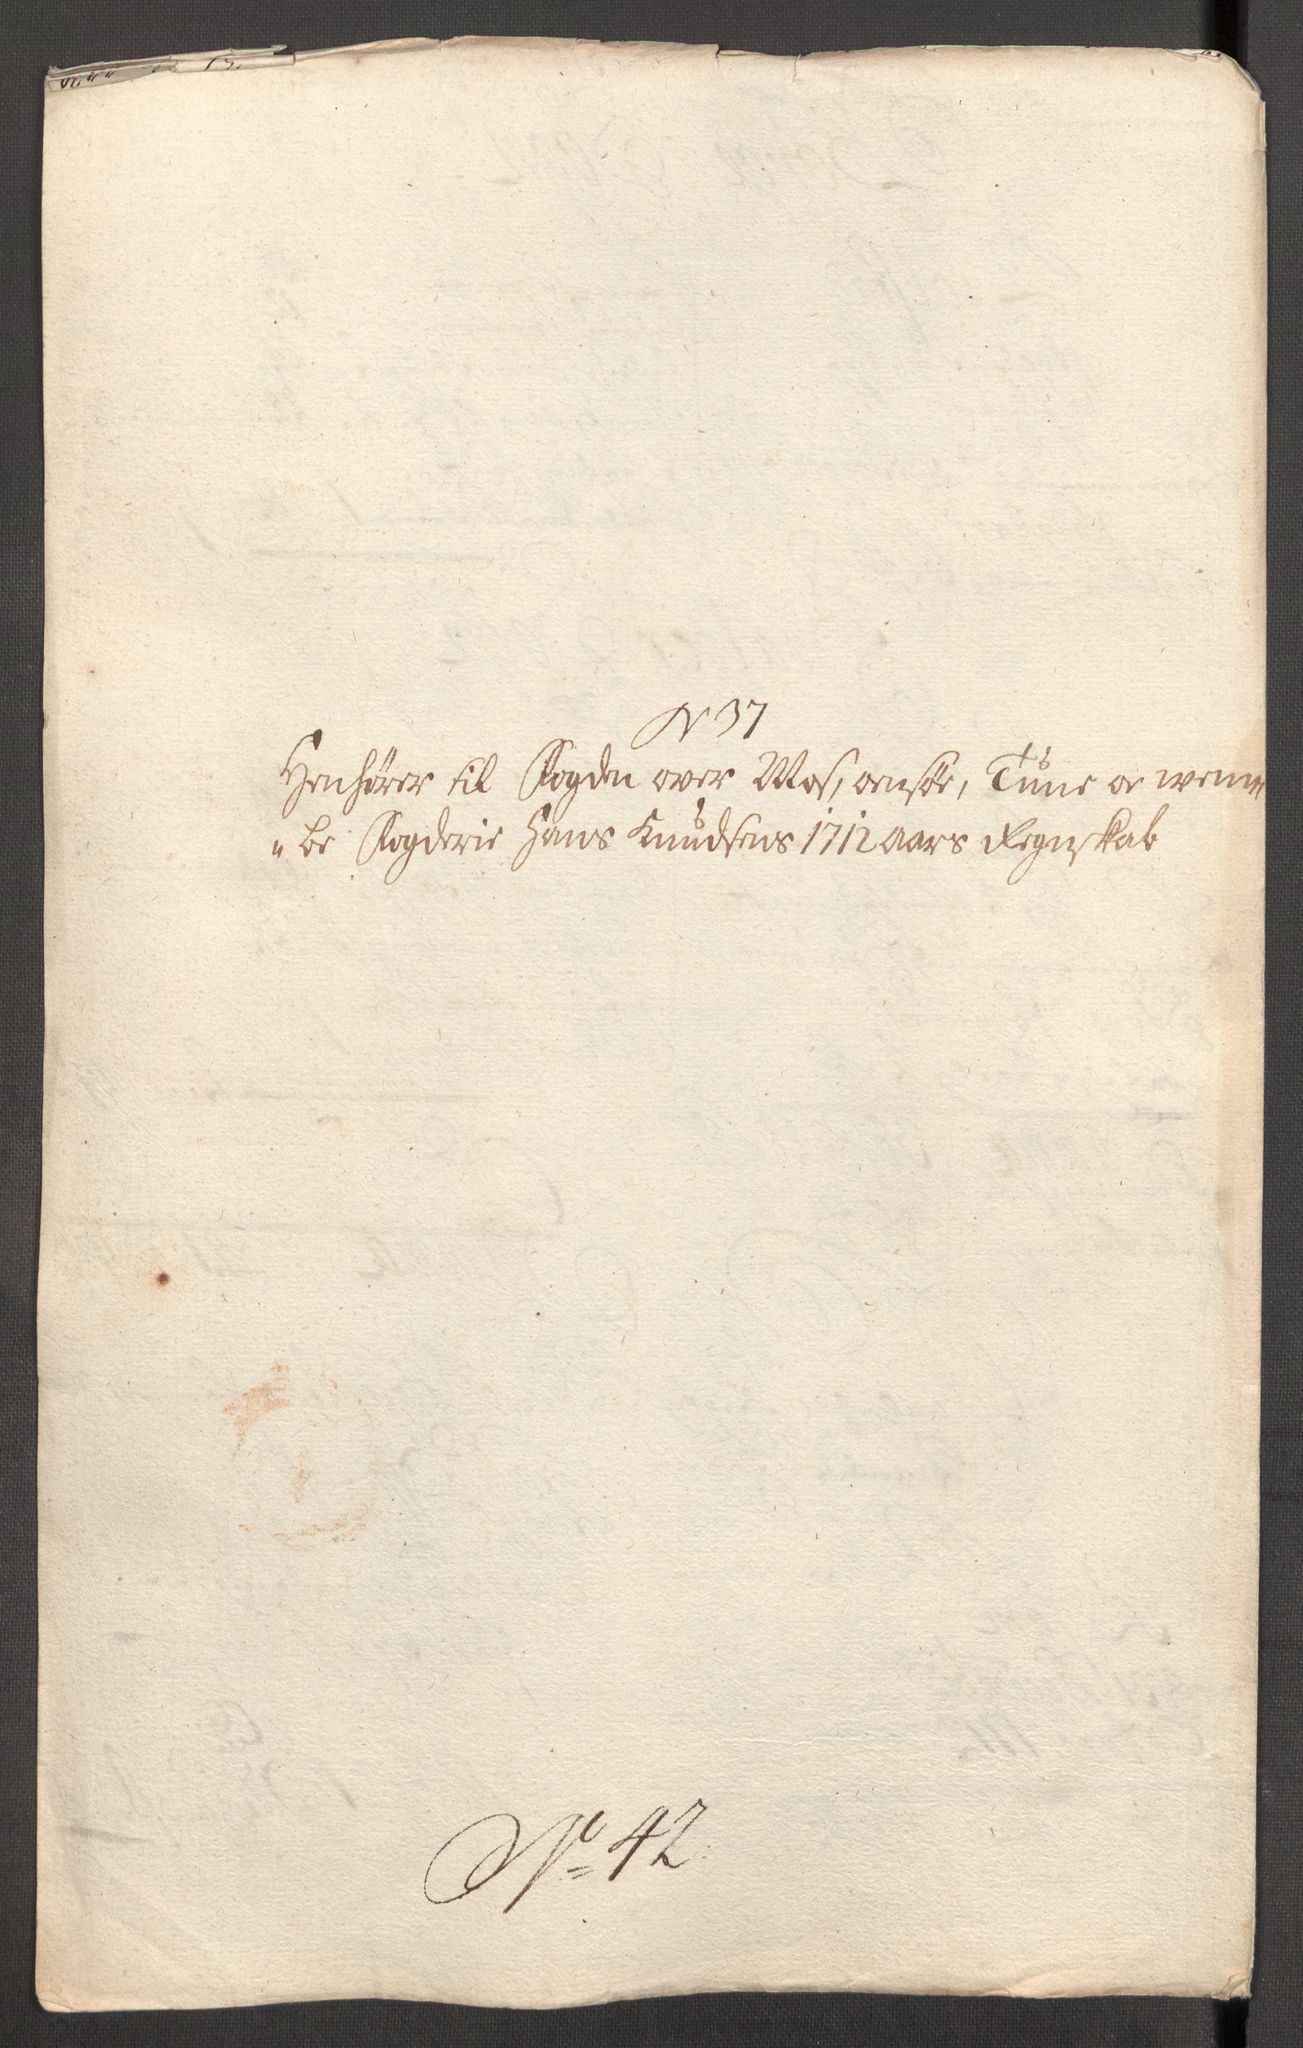 N 37
Henhører til Fogden over Mos, onsøe, Tune oc wem„
„be Fogderie Hans Knudsens 1712 aars Regnskab
No 42